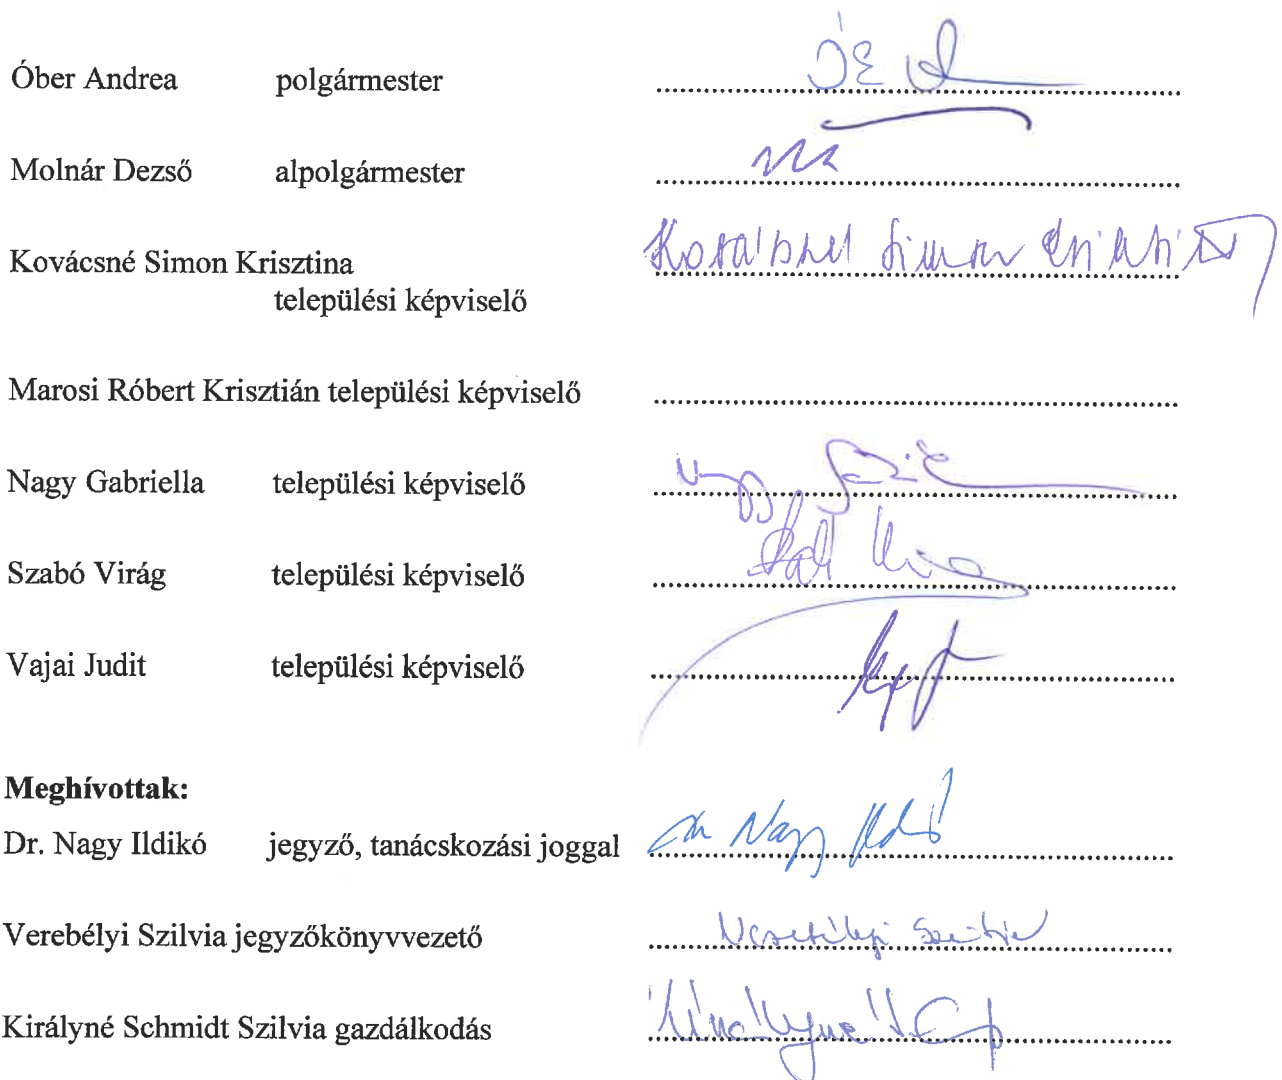 Óber Andrea polgármester
Molnár Dezső alpolgármester
Kovácsné Simon Krisztina Kovácsné Simon Krisztina
települési képviselő
Marosi Róbert Krisztián települési képviselő
Nagy Gabriella települési képviselő Nagy
Szabó Virág települési képviselő
Vajai Judit települési képviselő
Meghívottak:
Dr. Nagy Ildikó jegyző, tanácskozási joggal Dr Nagy Ildikó
Verebélyi Szilvia jegyzőkönyvvezető Verebélyi Szilvia
Királyné Schmidt Szilvia gazdálkodás Királyné